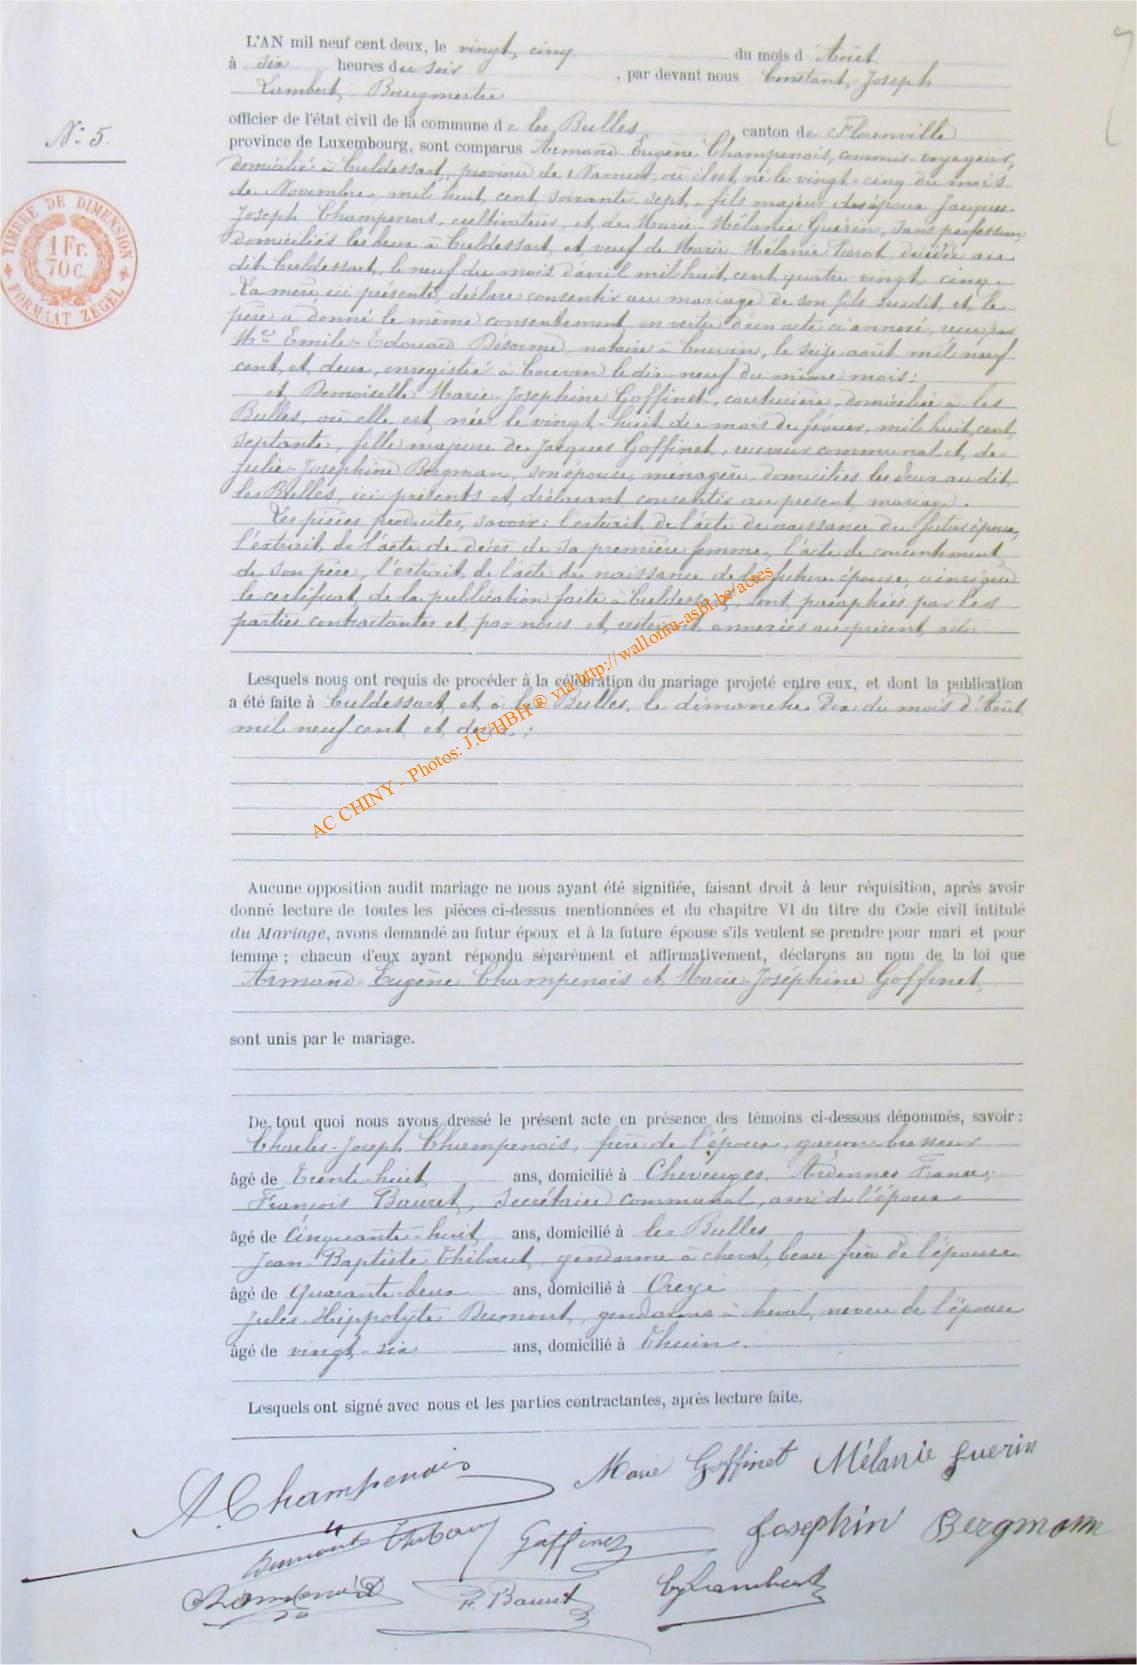 L'AN mil neuf cent deux, le vingt cinq du mois d'Août
à six heures du soir, par devant nous Constant-Joseph
Lambert, Bourgmestre
officier de l'état civil de la commune de les Bulles, canton de Florenville
N° 5.
province de Luxembourg, sont comparus Armand-Eugène Champenois, commis-voyageur,
domicilié à Culdessart, province de Namur, où il est né le vingt-cinq du mois
de Novembre, mil huit cent soixante sept, fils majeur des époux Jacques-
Joseph Champenois, cultivateur, et de Marie-Mélanie Guérin, sans profession,
domiciliés les deux à Culdessart, et veuf de Marie Mélanie décédée au
dit Culdessart, le neuf du mois d'avril mil huit cent quatre-vingt-cinq.
La mère, ici présente, déclare consentir au mariage de son fils susdit, et le
père a donné le même consentement en vertu d'un acte ci-annexé, reçu par
Mre Emile-Edouard Désorme, notaire à Couvin, le seize août mil neuf
cent et deux, enregistré à Couvin le dix-neuf du même mois:
et Demoiselle Marie-Josephine Goffinet, couturière, domiciliée à les
Bulles, où elle est née le vingt-huit du mois de février, mil huit cent
septante, fille majeure de Jacques Goffinet, receveur communal et de
Julie-Joséphine Bergman, son épouse, ménagère, domiciliés les deux au dit
les Bulles, ici présents et déclarant consentir au présent mariage.
Les pièces produites, savoir: l'extrait de l'acte de naissance du futur époux,
l'extrait de l'acte de décès de sa première femme, l'acte de consentement
de son père, l'extrait de l'acte de naissance de la future épouse, ainsi que
le certificat de la publication faite à Culdessart, sont paraphées par les
parties contractantes et par nous et resteront annexées au présent acte
Lesquels nous ont requis de procéder à la célébration du mariage projeté entre eux, et dont la publication
a été faite à Culdessart et à les Bulles, le dimanche dix du mois d'Août
mil neuf cent et deux;
Aucune opposition audit mariage ne nous ayant été signifiée, faisant droit à leur réquisition, après avoir
donné lecture de toutes les pièces ci-dessus mentionnées et du chapitre VI du titre du Code civil intitulé
du Mariage, avons demandé au futur époux et à la future épouse s'ils veulent se prendre pour mari et pour
femme ; chacun d'eux ayant répondu séparément et affirmativement, déclarons au nom de la loi que
Armand-Eugène Champenois et Marie-Joséphine Goffinet,
sont unis par le mariage.
De tout quoi nous avons dressé le présent acte en présence des témoins ci-dessous dénommés, savoir :
Charles-Joseph Champenois, frère de l'époux, garçon brasseur
âgé de Trente huit ans, domicilié à Cheveuges, Ardennes France;
François Bauret, Secrétaire communal, ami de l'époux
âgé de Cinquante-huit ans, domicilié à les Bulles
Jean Baptiste Thibaut, gendarme à cheval, beau-frère de l'épouse
âgé de Quarante-deux ans, domicilié à Oreye
Jules Hippolyte Dumont, gendarme à cheval, neveu de l'épouse
âgé de vingt-six ans, domicilié à Thuin.
Lesquels ont signé avec nous et les parties contractantes, après lecture faite.
A. Champenois Marie Goffinet Mélanie Guerin
Dumont Thibaut Goffinet Josephin Bergmann
Champenois F. Bauret Cj Lambert
TIMBRE DE DIMENSION
1 Fr.
70 c.
FORMAAT ZEGEL
AC CHINY - Photos: J.C/HBH ® via http://walloma-asbl.be/actes